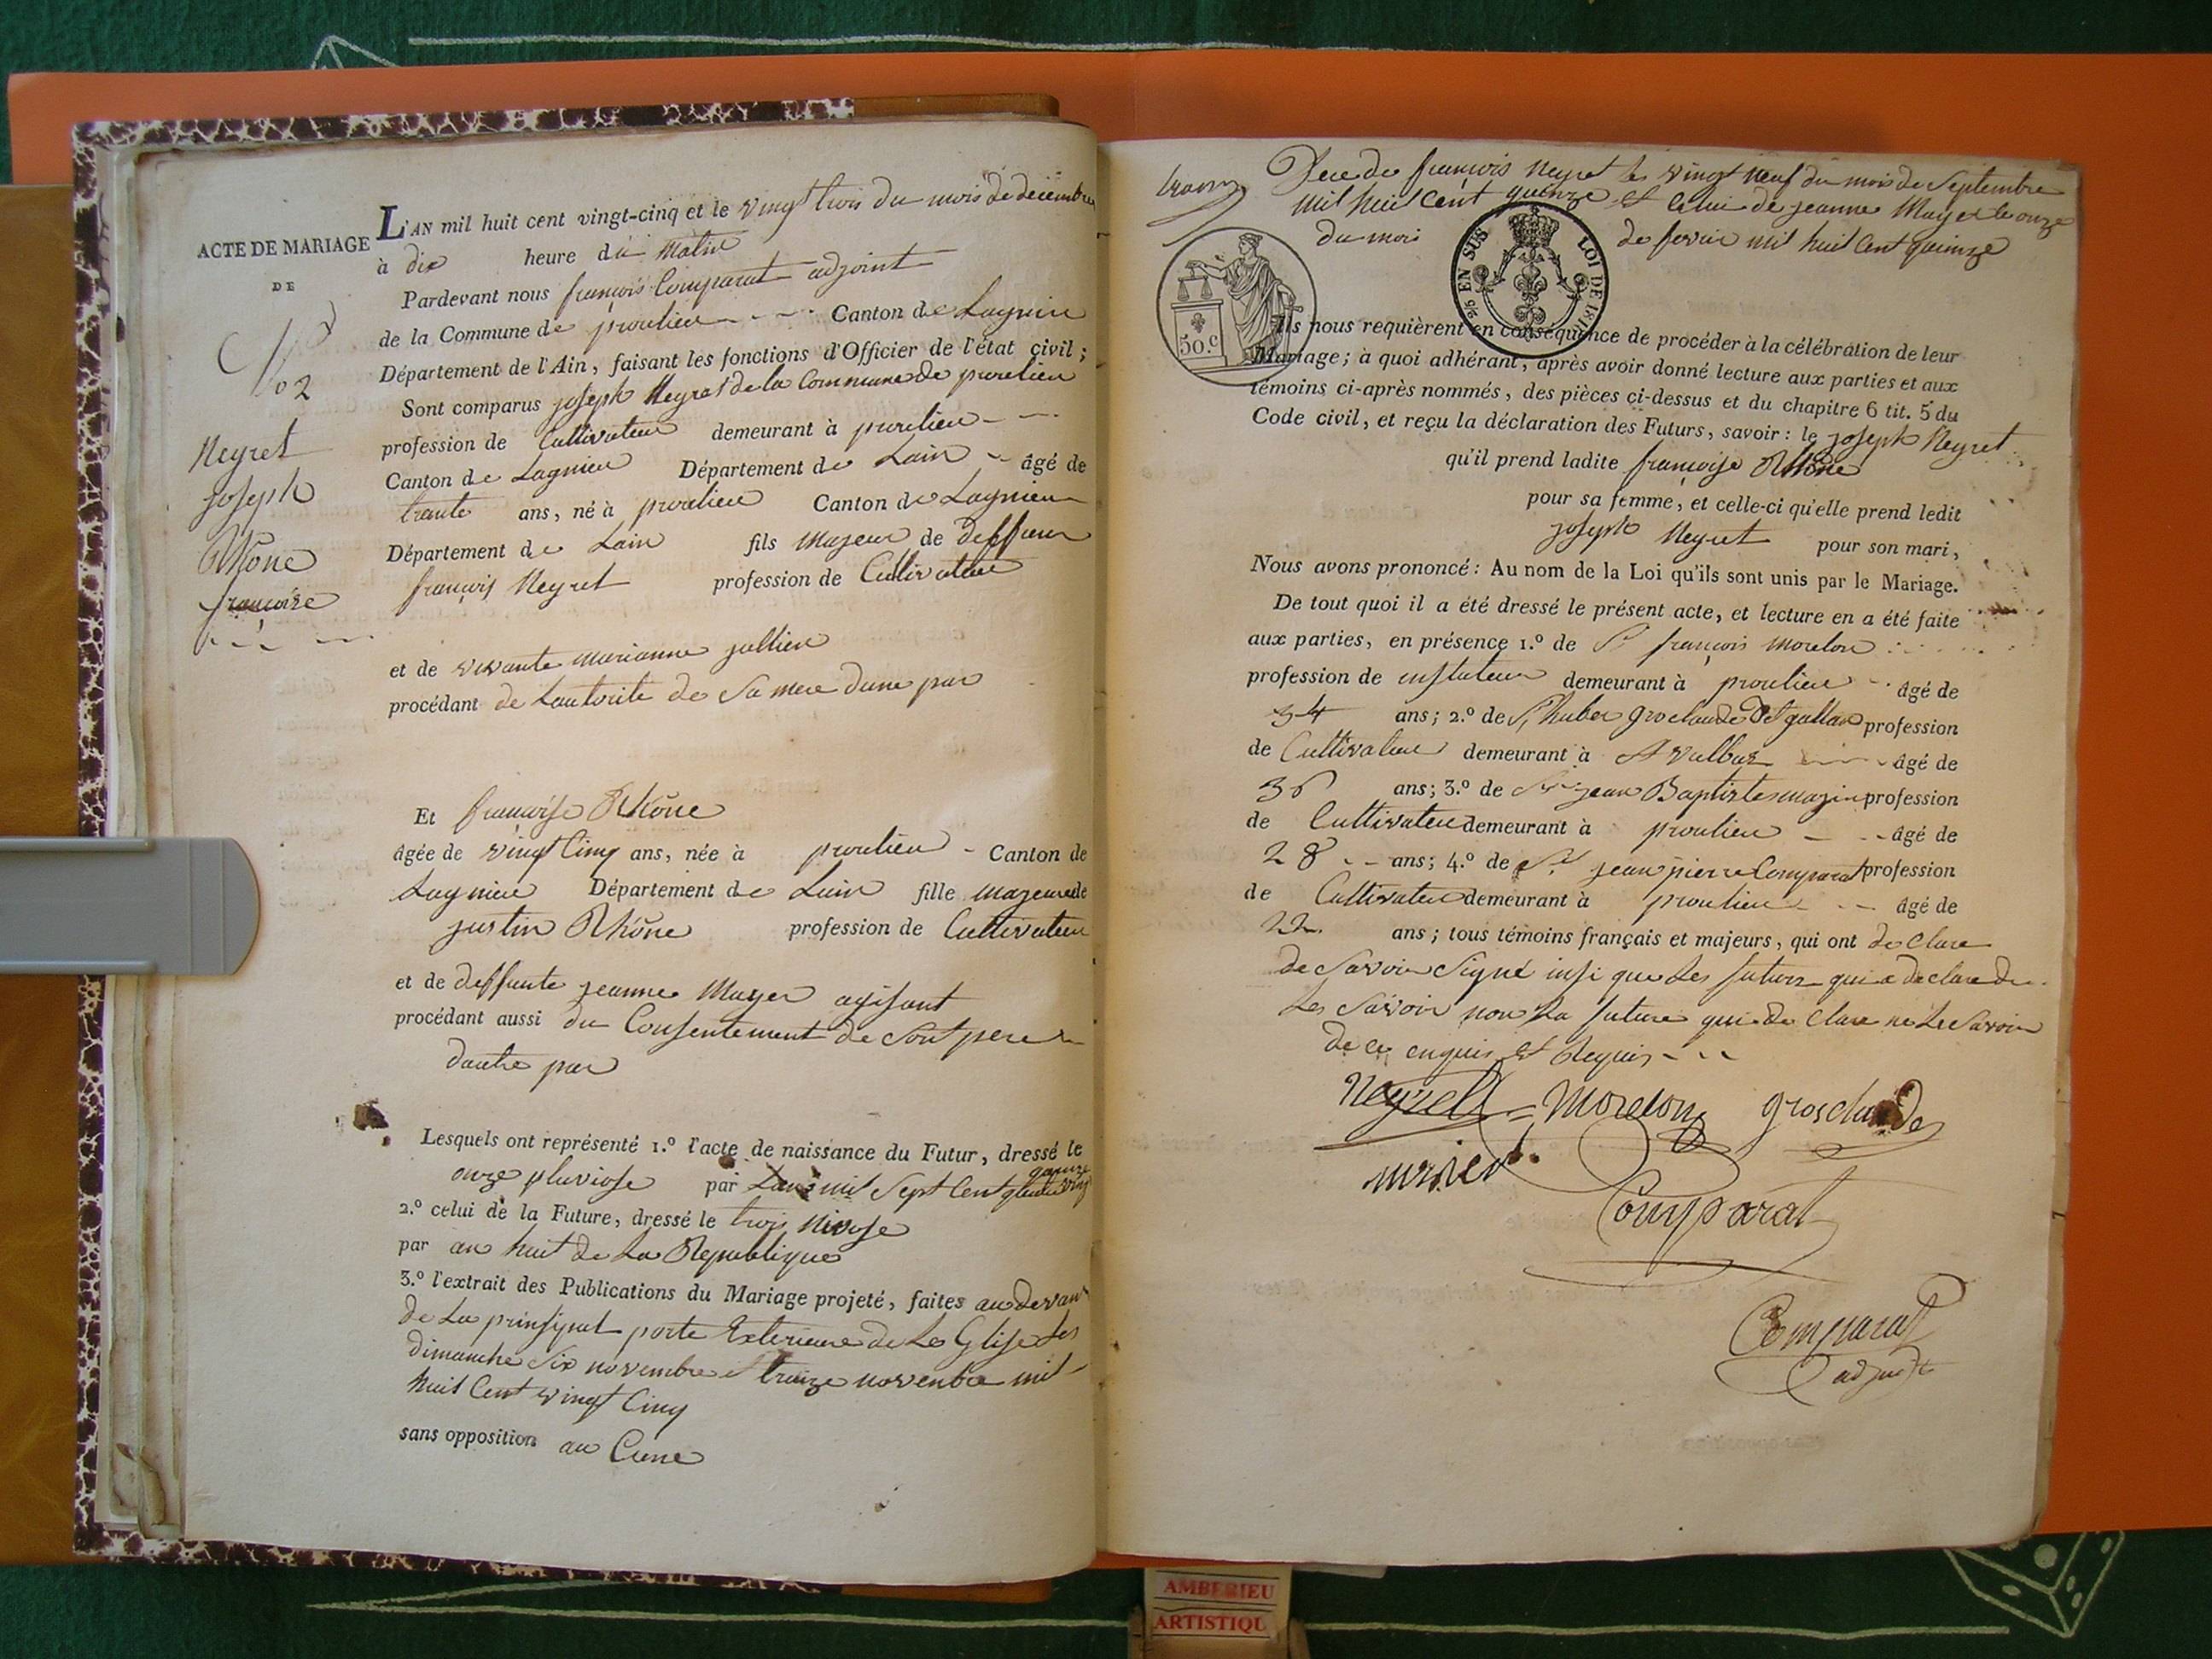 ACTE DE MARIAGE
DE
No 2
Neyret
joseph
Rhône
françoise
L'AN mil huit cent vingt-cinq et le vingt trois du mois de decembre
à dix heure du matin
Pardevant nous françois Comparat adjoint
de la Commune de proulieu Canton de Lagnieu
Département de l'Ain, faisant les fonctions d'Officier de l'état civil;
Sont comparus joseph Neyret de la Commune de proulieu
profession de Cultivateur demeurant à proulieu
Canton de Lagnieu Département de Lain âgé de
trente ans, né à proulieu Canton de Lagnieu
Département de Lain fils majeur de deffun
françois Neyret profession de Cultivateur
et de vivante marianne jullien
procédant de Lautorite de Sa mere dune par
Et françoise Rhône
âgée de vingt Cinq ans, née à proulieu Canton de
Lagnieu Département de Lain fille majeure de
justin Rhône profession de Cultivateur
et de deffunte jeanne Mayer agisant
procédant aussi du Consentement de Son pere
dautre par
Lesquels ont représenté 1.º l'acte de naissance du Futur, dressé le
onze pluviose par Lan mil Sept Cent quatre vingt quinze
2.º celui de la Future, dressé le trois Nivose
par an huit de La Republique
3.º l'extrait des Publications du Mariage projeté, faites au devan
de La prinsipal porte Exterieure de Le Glise Les
dimanche Six novembre et treize novenbre mil
huit Cent vingt Cinq
sans opposition au Cune
Dece de françois Neyret le vingt neuf du mois de Septembre
mil huit Cent quinze et Celui de jeanne Mayer le onze
du mois de fevrier mil huit Cent quinze
50.c
EN SUS LOI DE
Ils nous requièrent en conséquence de procéder à la célébration de leur
Mariage; à quoi adhérant, après avoir donné lecture aux parties et aux
témoins ci-après nommés, des pièces ci-dessus et du chapitre 6 tit. 5 du
Code civil, et reçu la déclaration des Futurs, savoir: le joseph Neyret
qu'il prend ladite françoise Rhône
pour sa femme, et celle-ci qu'elle prend ledit
joseph Neyret pour son mari,
Nous avons prononcé: Au nom de la Loi qu'ils sont unis par le Mariage.
De tout quoi il a été dressé le présent acte, et lecture en a été faite
aux parties, en présence 1.º de Sr françois morelon
profession de instuteur demeurant à proulieu âgé de
34 ans; 2.º de Sr huber groclaude profession
de Cultivateur demeurant à St vulbas âgé de
36 ans; 3.º de Sr jean Baptiste profession
de Cultivateur demeurant à proulieu âgé de
28 ans; 4.º de Sr jean pierre Comparat profession
de Cultivateur demeurant à proulieu âgé de
22 ans; tous témoins français et majeurs, qui ont de Clare
de Savoir Signé insi que Les futurs qui a de clare de
Les Savoir non La future qui a de Clare ne Le Savoir
de ce enquis et Requis
Neyrett Morelon grosclaude
Comparat
Comparat
adjoint
AMBERIEU
ARTISTIQU